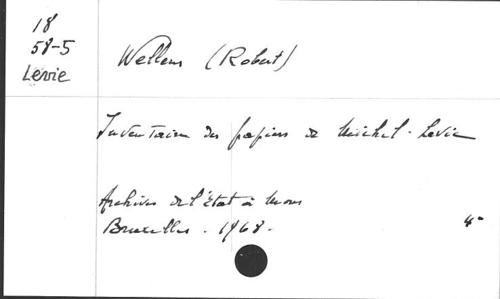 18
58-5
Levie
Wellens (Robert)
Inventaire des papiers de Michel-Levie
Archives de l'État à Mons
Bruxelles. 1968.
4°